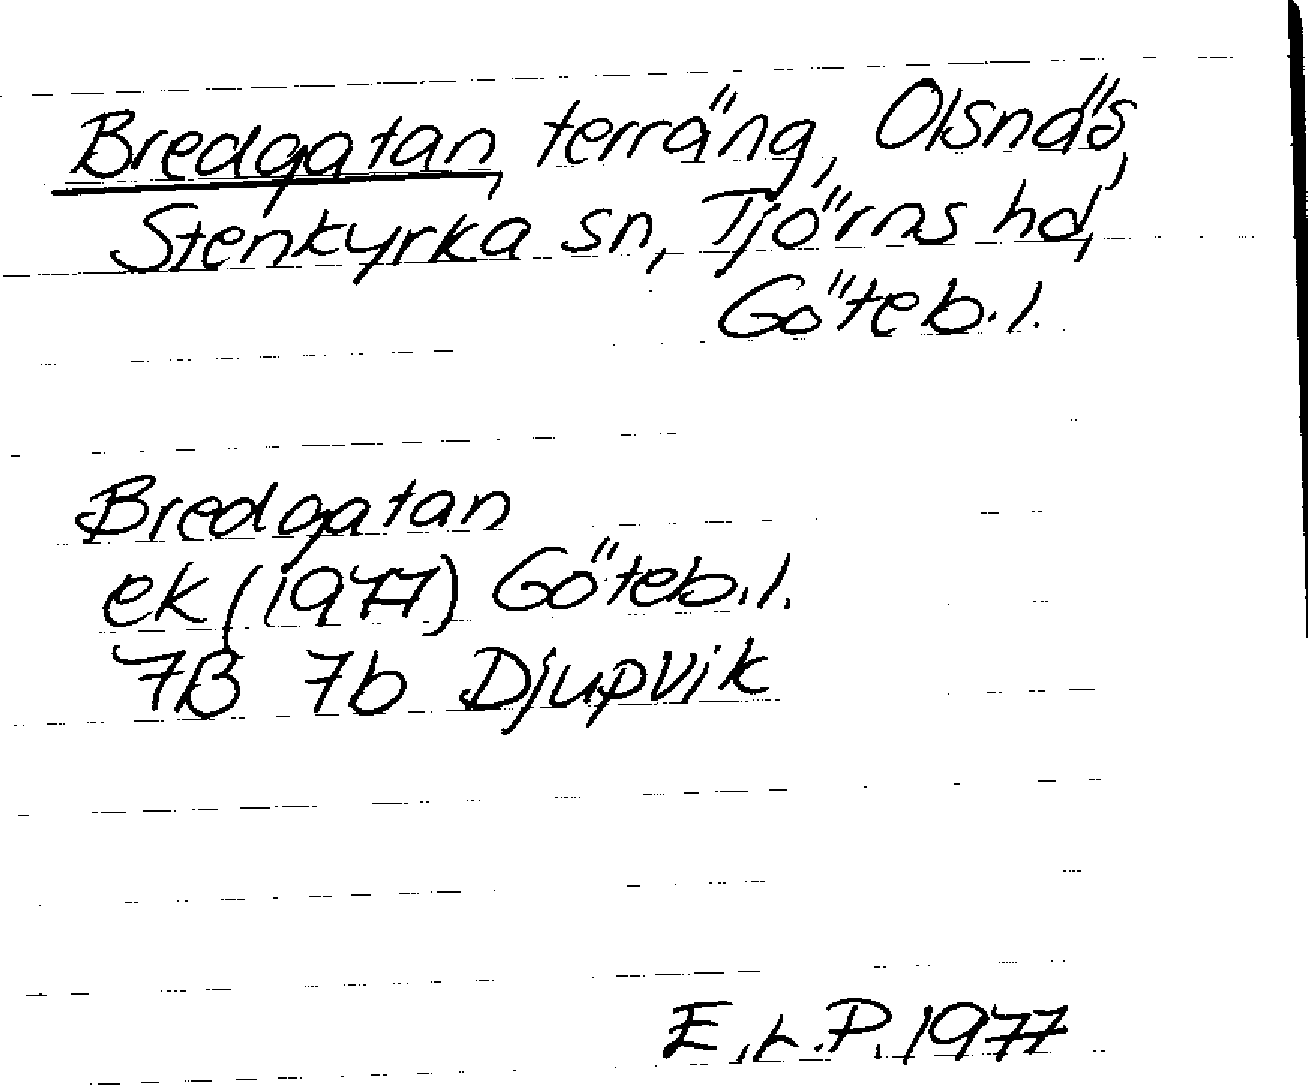 Bredgatan, terräng, Olsnäs,
Stenkyrka sn, Tjörns hd,
Göteb.l.
Bredgatan
ek (1977) Göteb.l.
7B 7b Djupvik
E.L.P. 1977